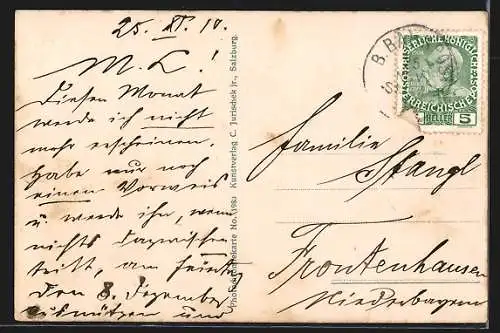 25. XI. 10.
M. L.!
Diesen Monat
werde ich nicht
mehr erscheinen.
Habe nur noch
einen Vorweis
u. werde ihn, wenn
nichts dazwischen
tritt, am
den 8. Dezember
ausnützen und
Photochromiekarte No. 1983 Kunstverlag C. Jurischek jr., Salzburg.
B. BA
KAISERLICHE KÖNIGLICHE
ÖSTERREICHISCHE
HELLER
5
Familie
Stangl
Frontenhausen
Niederbayern